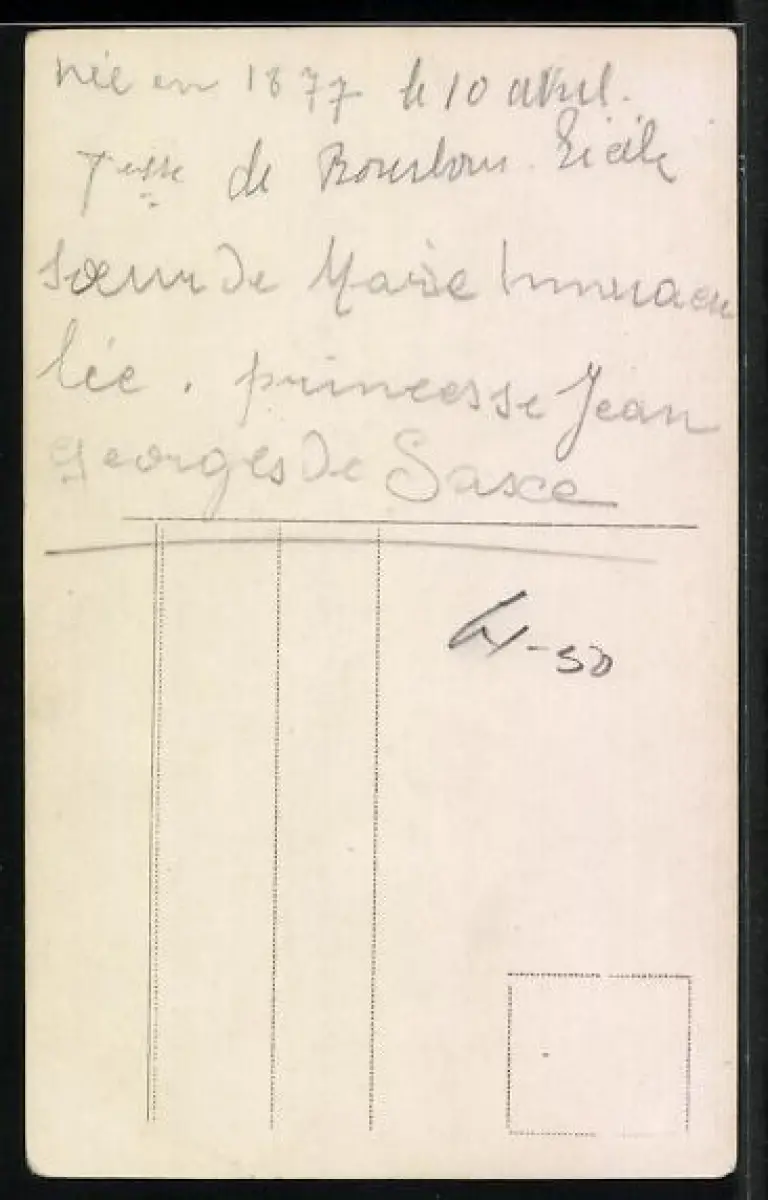 née en 1877 le 10 avril.
Pcesse de Bourbon. Sicile
sœur de Marie Immacu
lée. princesse Jean
Georges de Saxe
-50